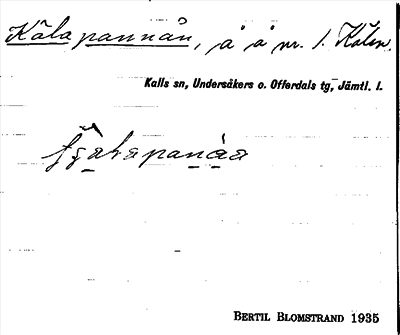 Kålapannån, å å nr. 1. Kålen.
Kalls sn, Undersåkers o. Offerdals tg, Jämtl. l.
BERTIL BLOMSTRAND 1935